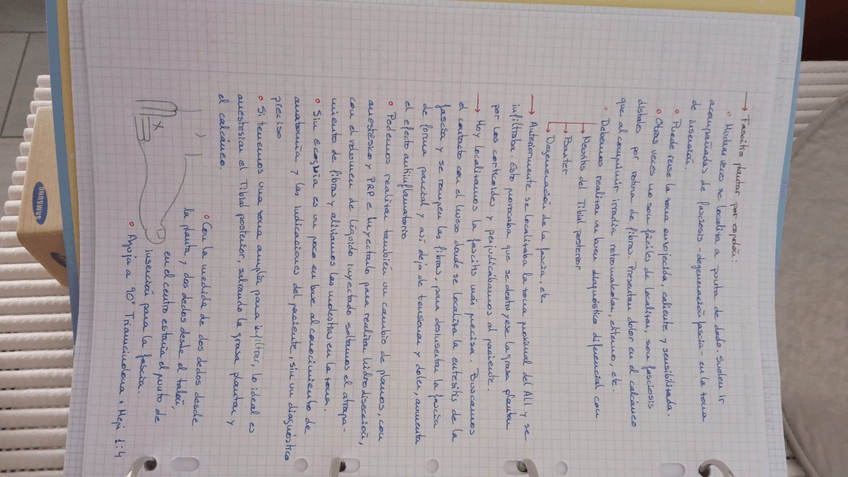 → Fascitis plantar por espolón:
◦ Muchas veces se localiza a punta de dedo. Suelen ir
acompañadas de fasciosis - degeneración fascia - en la zona
de inserción.
◦ Puede verse la zona enrojecida, caliente y sensibilizada.
◦ Otras veces no son fáciles de localizar, son fasciosis
distales por rotura de fibras. Presentan dolor en el calcáneo
que al comprimir irradia retromaleolar, externo, etc.
◦ Debemos realizar un buen diagnóstico diferencial con
→ Neuritis del Tibial posterior
→ Baxter
→ Degeneración de la fascia, etc
→ Anteriormente se localizaba la zona proximal del ALI y se
infiltraba. Esto provocaba que se destruyese la grasa plantar
por los corticoides y perjudicábamos al paciente.
→ Hoy localizamos la fascitis más precisa. Buscamos
el contacto con el hueso donde se localiza la entesitis de la
fascia y se rompen las fibras, para desinsertar la fascia
de forma parcial y así deja de tensionar y doler, aumenta
el efecto antiinflamatorio
◦ Podemos realizar también un cambio de planos, con
anestésico y PRP e inyectarlo para realizar hidrodisección,
con el volumen de líquido inyectado soltamos el atrapa-
miento de fibras y aliviamos las molestias en la zona.
◦ Sin ecografía es un poco en base al conocimiento de
anatomía y las indicaciones del paciente, sin un diagnóstico
preciso
◦ Si tenemos una zona amplia para infiltrar, lo ideal es
anestesiar el Tibial posterior, salvando la grasa plantar y
el calcáneo
◦ Con la medida de dos dedos desde
la planta, y dos dedos desde el talón,
en el centro estaría el punto de
inserción para la fascia.
◦ Aguja a 90° Triamcinolona + Mepi 1:4
X
SAMSUNG